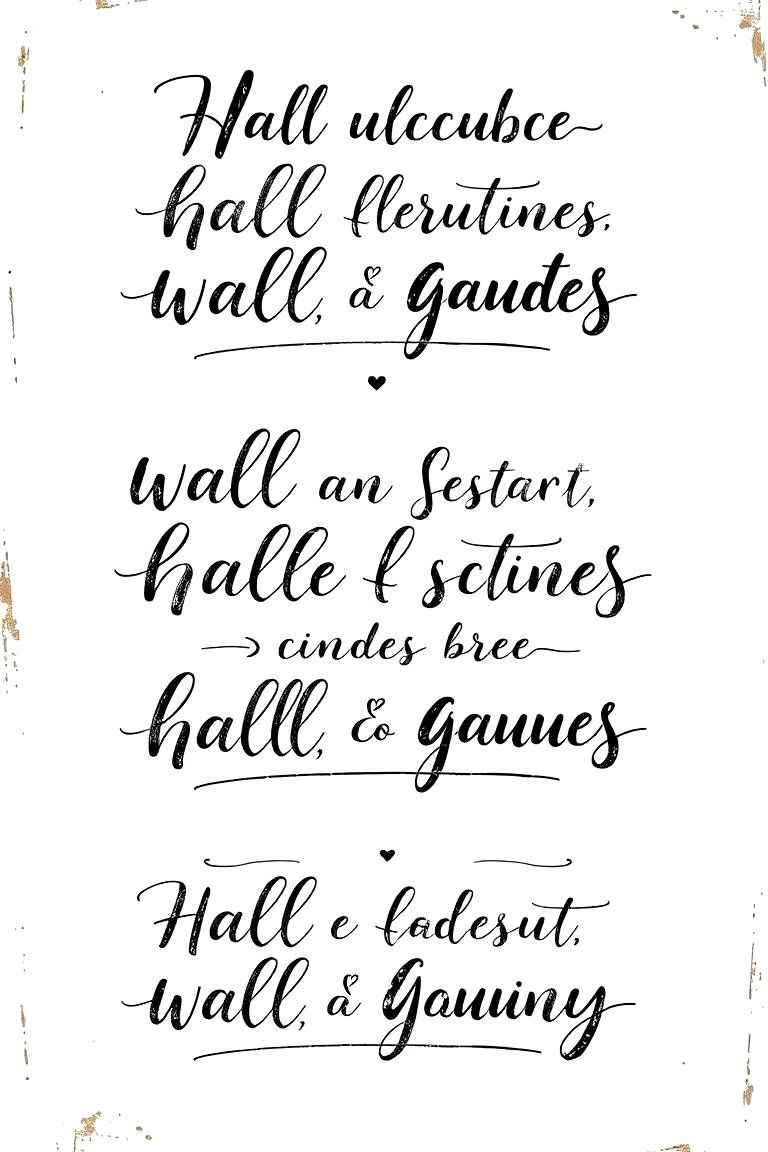 Hall ulccubce
hall flerutines.
wall, å gaudes
wall an Sestart,
halle f sctines
cindes bree
halll, & gauues
Hall e fadesut,
wall, å Gauuiny